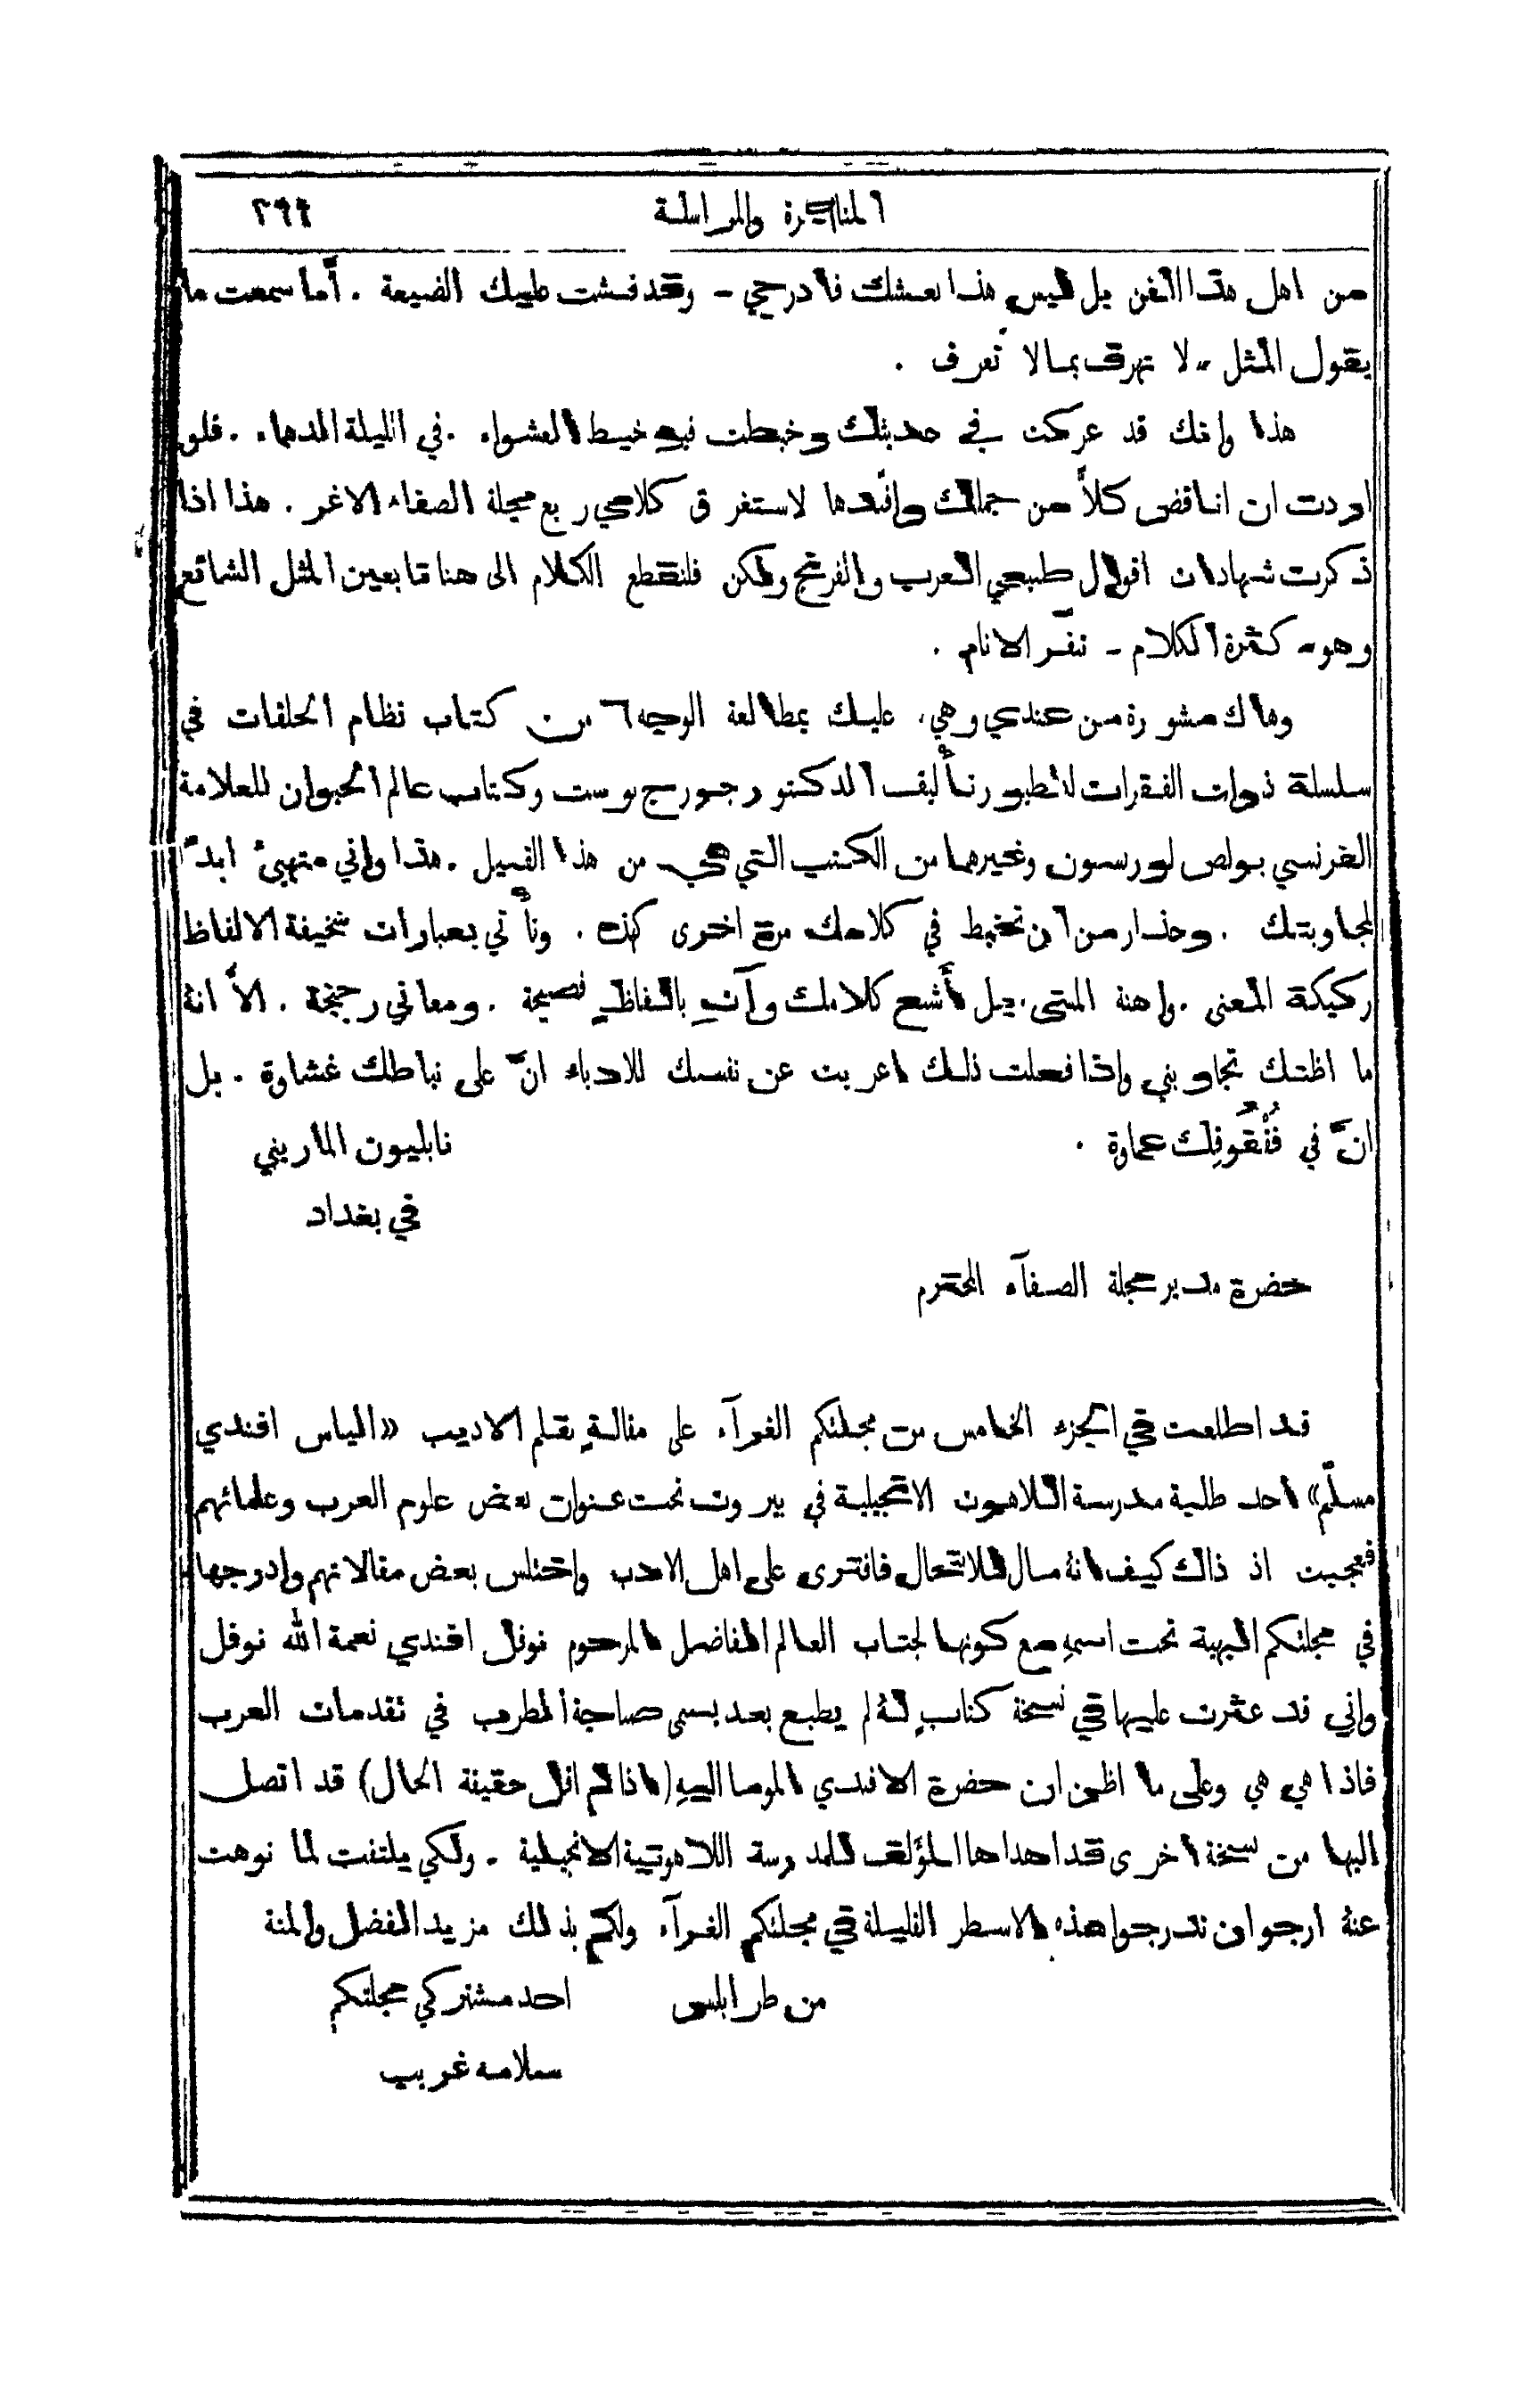 المناظرة والمراسلة ٢٩٩
من اهل هذا الفن بل ليس هذا بعشك فادرجي - وقد فشت عليك الضيعة . أَما سمعت ما
يقول المثل " لا تهرف بما لا تعرف .
هذا وانك قد عركت في حديثك وخبطت فيه خبط العشواء . في الليلة الدهماء . فلو
اردت ان اناقض كلاًّ من جملك وافندها لاستغرق كلامي ربع مجلة الصفاء الاغر . هذا اذا
ذكرت شهادات اقوال طبيعي العرب والفرنج ولكن فلنقطع الكلام الى هنا تابعين المثل الشائع
وهو - كثرة الكلام - تنفّر الانام .
وهاك مشورة من عندي وهي، عليك بمطالعة الوجه ٦ من كتاب نظام الحلقات في
سلسلة ذوات الفقرات للطيور تأليف الدكتور جورج بوست وكتاب عالم الحيوان للعلامة
الفرنسي بولص لورسون وغيرها من الكتب التي هي من هذا القبيل . هذا واني متهيئ ابداً
لمجاوبتك . وحذار من ان تخبط في كلامك مرة اخرى كهذه . وتأتي بعبارات سخيفة الالفاظ
ركيكة المعنى . واهنة المبنى . بل أَشبع كلامك وآتِ بالفاظٍ فصيحة . ومعاني رجيحة . الاَّ انهُ
ما اظنك تجاوبني واذا فعلت ذلك اعربت عن نفسك للادباء انَّ على نباطك غشاوة . بل
انَّ في فُقُوفِك عماوة .
نابليون الماريني
في بغداد
حضرة مدير مجلة الصفآء المحترم
قد اطلعت في الجزء الخامس من مجلتكم الغرآء على مقالةٍ بقلم الاديب «الياس افندي
مسلّم» احد طلبة مدرسة اللاهوت الانجيلية في بيروت تحت عنوان بعض علوم العرب وعلمائهم
فعجبت اذ ذاك كيف انهُ مال للانتحال فافترى على اهل الادب واختلس بعض مقالاتهم وادرجها
في مجلتكم البهية تحت اسمهِ مع كونها لجناب العالم الفاضل المرحوم نوفل افندي نعمة الله نوفل
واني قد عثرت عليها في نسخة كتابٍ لهُ لم يطبع بعد يسمى صناجة الطرب في تقدمات العرب
فاذا هي هي وعلى ما اظن ان حضرة الافندي الموما اليهِ (اذا لم اقل حقيقة الحال) قد اتصل
اليها من نسخة اخرى قد اهداها المؤلف للمدرسة اللاهوتية الانجيلية . ولكي يلتفت لما نوهت
عنهُ ارجو ان تدرجوا هذه الاسطر القليلة في مجلتكم الغرآء ولكم بذلك مزيد الفضل والمنة
من طرابلس احد مشتركي مجلتكم
سلامه غريب